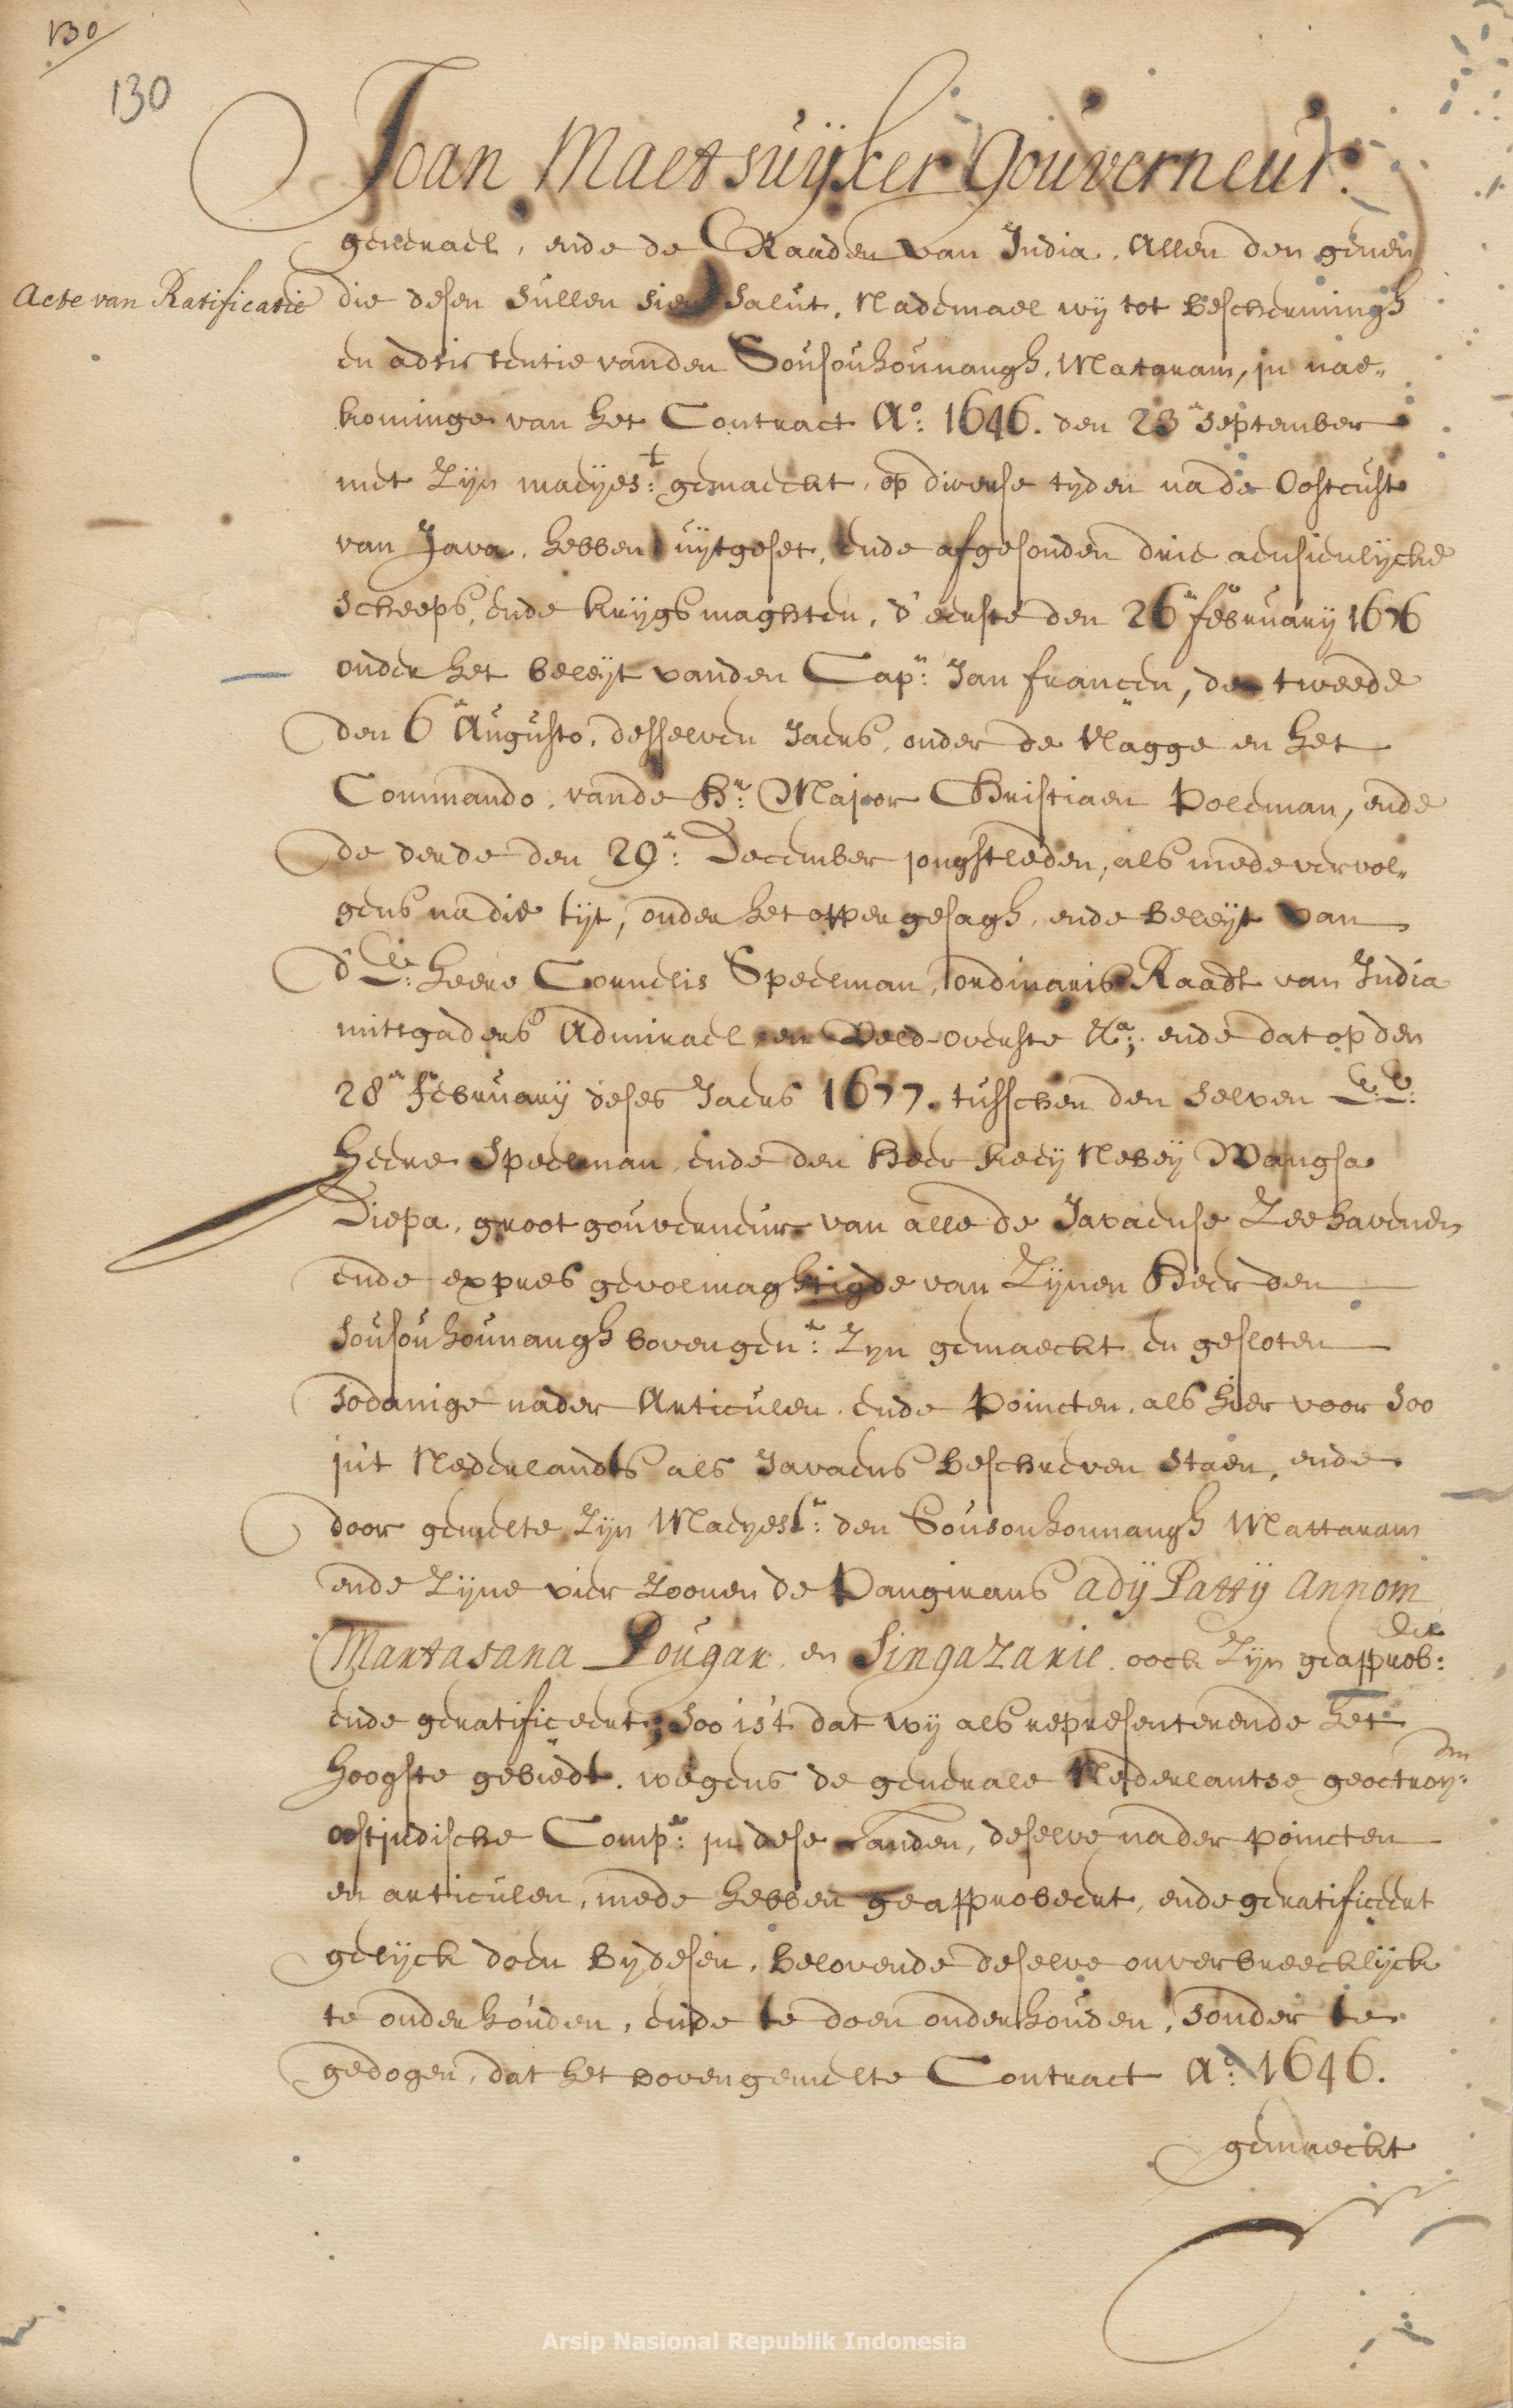 130
130
Joan Maetsuÿker Gouverneur
generael, ende de Raaden van India, Allen den genen
Acte van Ratificatie
die desen sullen sien Salut, Nademael wy tot beschermingh
en adsistentie vanden Sousouhounangh, Mataram, in nae„
kominge van het Contract Aº: 1646. den 23.n September
met Zyn mayes:t gemaeckt, op diverse tyden nade Oostcust
van Java, hebben uÿtgeset, ende afgesonden drie aensienlÿcke
scheeps, ende krÿgsmaghten, d' eerste den 26.n februarÿ 1676
onder het beleÿt vanden Cap.n: Jan francen, de tweede
den 6.n Augusto, desselven Jaers, onder de vlagge en het
Commando, vande H.r: Majoor Christiaen Poleman, ende
de derde den 29.n: December jonghstleden, als mede vervol„
gens na die tÿt, onder het oppergesagh, ende beleÿt van
d' E: Heere Cornelis Speelman, ordinaris Raadt van India
mitsgaders Admirael en Veld-overste &.a; ende dat op den
28.n februarÿ deses Jaers 1677. tusschen den selven E: E:
Heere Speelman, ende den Heer keeÿ Nebeÿ Wangsa
Diepa, groot gouverneur van alle de Javaense Zeehavenen
ende expres gevolmaghtigde van Zÿnen Heer den
sousouhounangh bovengen.t: Zyn gemaeckt en gesloten
sodanige nader Articulen ende Poincten, als hier voor soo
in't Nederlandts als Javaens beschreven staen, ende
door gemelte Zÿn Mayest.t: den Sousouhounangh Mattaram
ende Zÿne vier Zoonen de Pangirans Adÿ Pattÿ Annom
Martasana Pougar, en Singazarie, oock Zÿn geapprob:eert
ende geratificeert; soo is't dat wÿ als representerende het
hoogste gebiedt, wegens de generale Nederlantse geoctroy:de
oostindische Comp.e: in dese Landen, deselve nader poincten
en articulen, mede hebben geapprobeert, ende geratificeert
gelÿck doen bydesen, belovende deselve onverbreecklÿck
te onderhouden, ende te doen onderhouden, sonder te
gedogen, dat het bovengemelte Contract Aº: 1646.
gemaeckt
Arsip Nasional Republik Indonesia